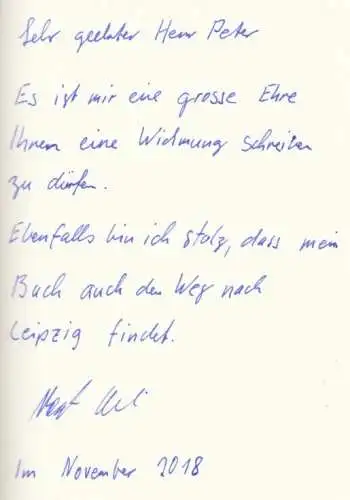 Sehr geehrter Herr Peter
Es ist mir eine grosse Ehre
Ihnen eine Widmung schreiben
zu dürfen.
Ebenfalls bin ich stolz, dass mein
Buch auch den Weg nach
Leipzig findet.
Im November 2018